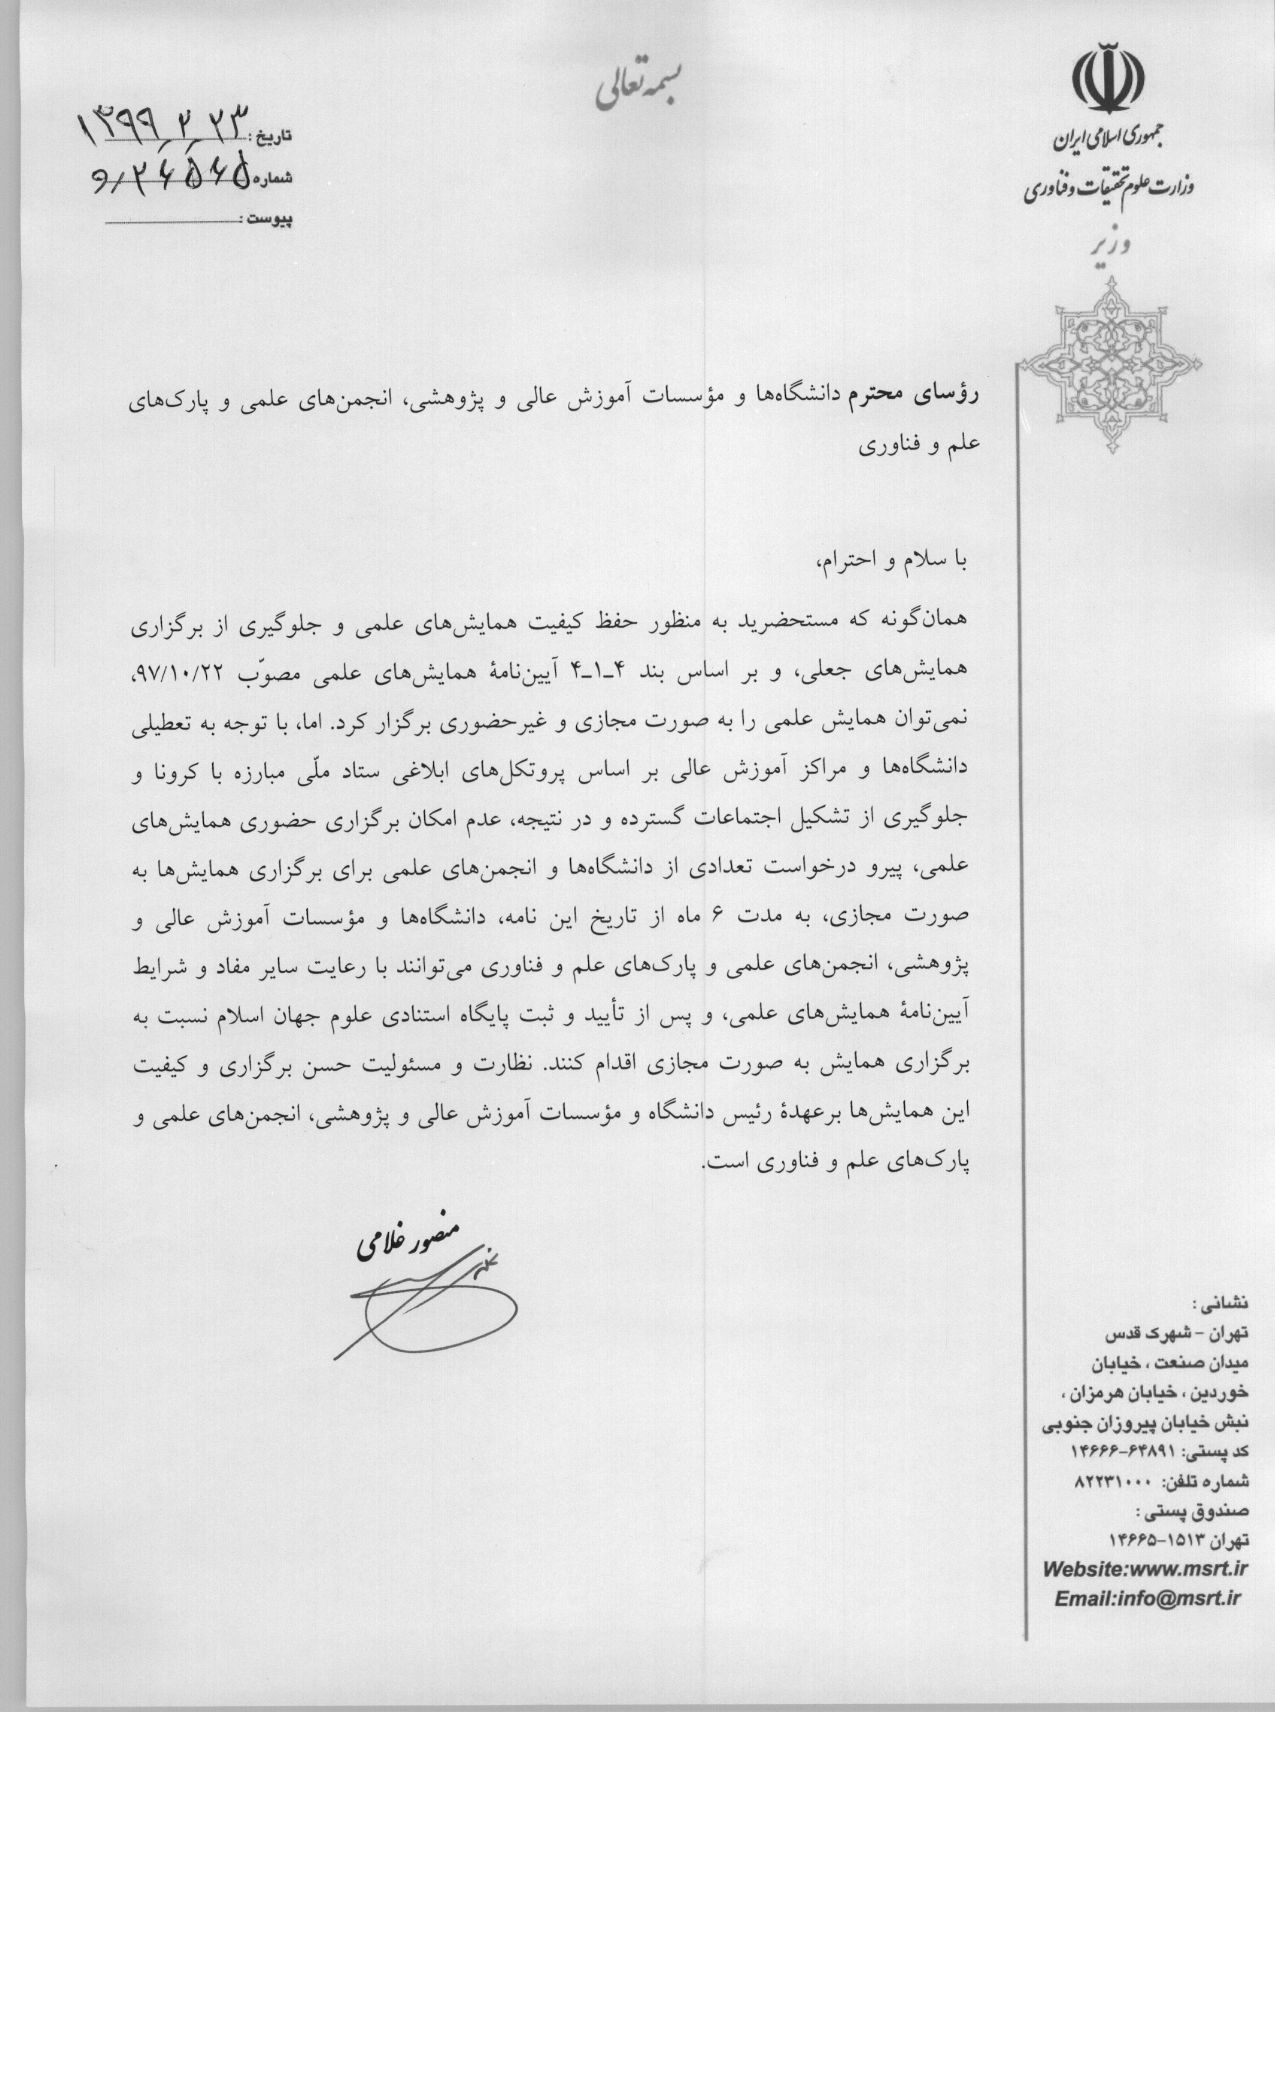 بسمه تعالی
جمهوری اسلامی ایران
وزارت علوم تحقیقات و فناوری
وزیر
تاریخ: ۱۳۹۹/۲/۲۳
شماره
پیوست:
رؤسای محترم دانشگاه‌ها و مؤسسات آموزش عالی و پژوهشی، انجمن‌های علمی و پارک‌های
علم و فناوری
با سلام و احترام،
همان‌گونه که مستحضرید به منظور حفظ کیفیت همایش‌های علمی و جلوگیری از برگزاری
همایش‌های جعلی، و بر اساس بند ۴ـ۱ـ۴ آیین‌نامهٔ همایش‌های علمی مصوّب ۹۷/۱۰/۲۲،
نمی‌توان همایش علمی را به صورت مجازی و غیرحضوری برگزار کرد. اما، با توجه به تعطیلی
دانشگاه‌ها و مراکز آموزش عالی بر اساس پروتکل‌های ابلاغی ستاد ملّی مبارزه با کرونا و
جلوگیری از تشکیل اجتماعات گسترده و در نتیجه، عدم امکان برگزاری حضوری همایش‌های
علمی، پیرو درخواست تعدادی از دانشگاه‌ها و انجمن‌های علمی برای برگزاری همایش‌ها به
صورت مجازی، به مدت ۶ ماه از تاریخ این نامه، دانشگاه‌ها و مؤسسات آموزش عالی و
پژوهشی، انجمن‌های علمی و پارک‌های علم و فناوری می‌توانند با رعایت سایر مفاد و شرایط
آیین‌نامهٔ همایش‌های علمی، و پس از تأیید و ثبت پایگاه استنادی علوم جهان اسلام نسبت به
برگزاری همایش به صورت مجازی اقدام کنند. نظارت و مسئولیت حسن برگزاری و کیفیت
این همایش‌ها برعهدهٔ رئیس دانشگاه و مؤسسات آموزش عالی و پژوهشی، انجمن‌های علمی و
پارک‌های علم و فناوری است.
منصور غلامی
نشانی :
تهران - شهرک قدس
میدان صنعت ، خیابان
خوردین ، خیابان هرمزان ،
نبش خیابان پیروزان جنوبی
کد پستی: ۱۴۶۶۶-۶۴۸۹۱
شماره تلفن: ۸۲۲۳۱۰۰۰
صندوق پستی :
تهران ۱۵۱۳-۱۴۶۶۵
Website:www.msrt.ir
Email:info@msrt.ir